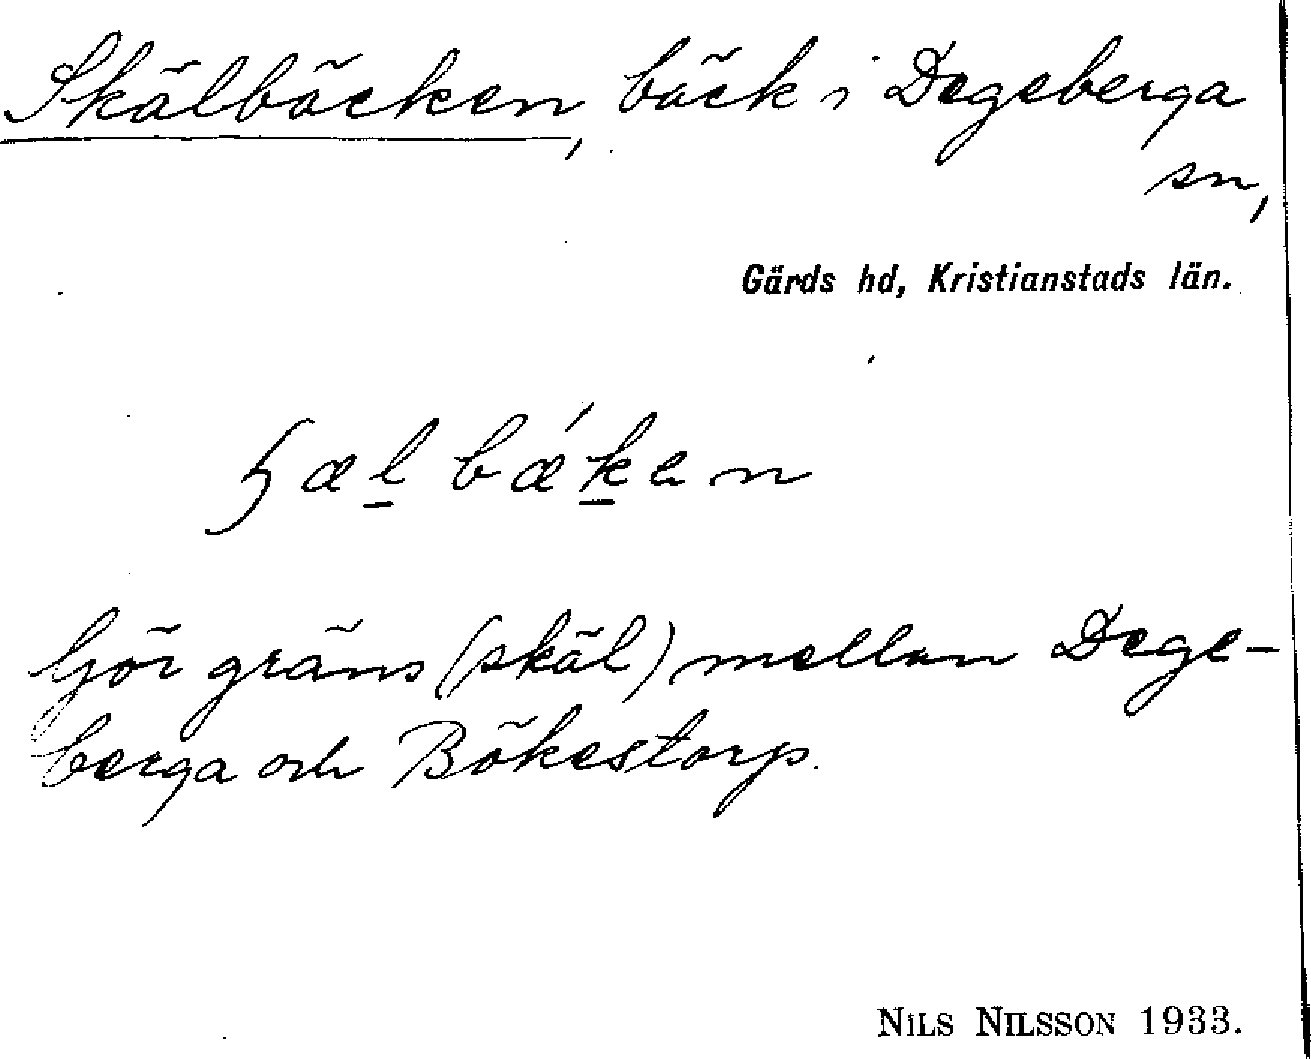 Skälbäcken, bäck i Degeberga
sn,
Gärds hd, Kristianstads län.
ɧæl̲bǽk̲en
Gör gräns (skäl) mellan Dege-
berga och Bökestorp.
NILS NILSSON 1933.